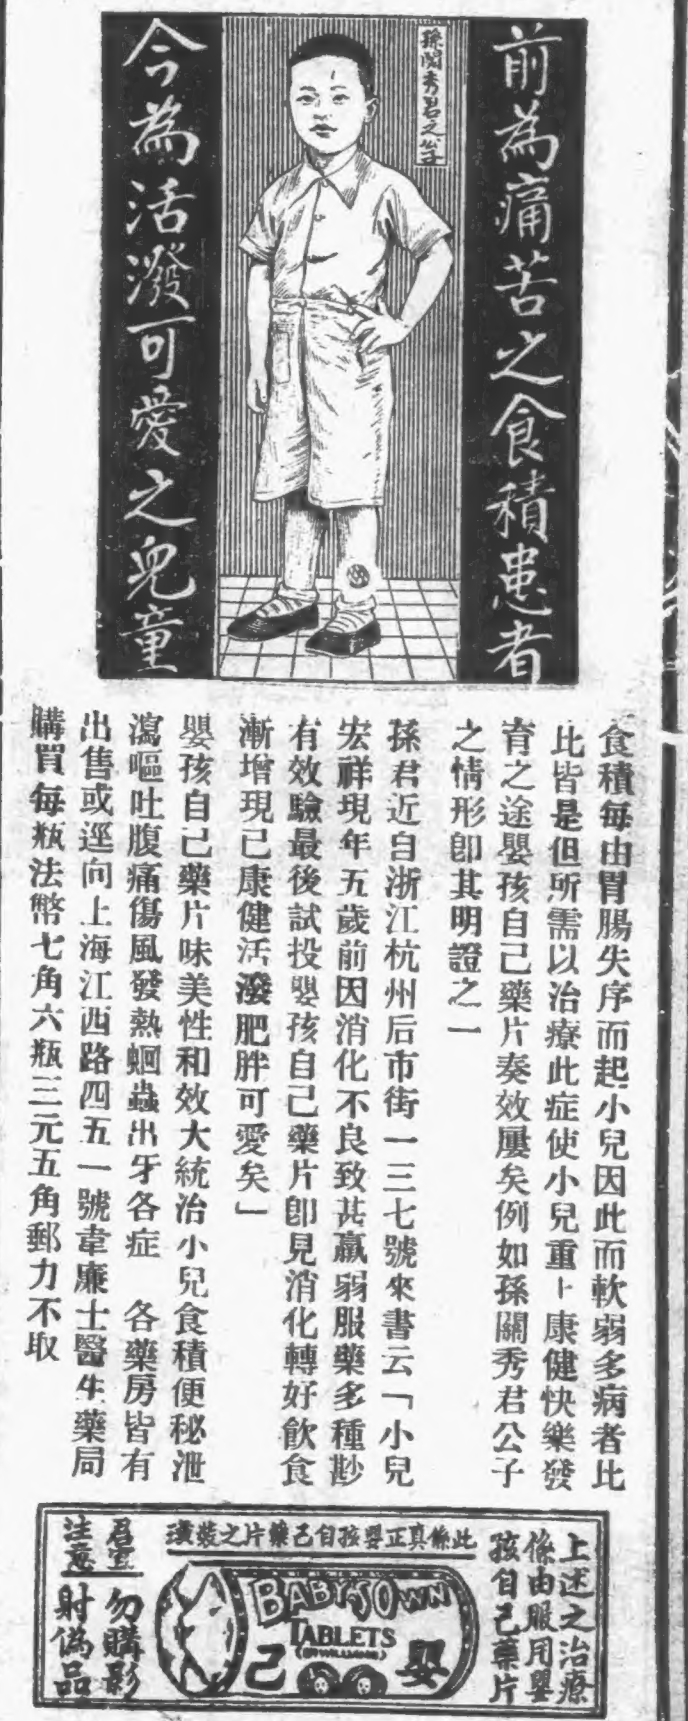 前為痛苦之食積患者
孫關秀君之公子
今為活潑可愛之兒童
食積每由胃腸失序而起小兒因此而軟弱多病者比
比皆是但所需以治療此症使小兒重上康健快樂發
育之途嬰孩自己藥片奏效屢矣例如孫關秀君公子
之情形卽其明證之一
孫君近自浙江杭州后市街一三七號來書云「小兒
宏祥現年五歲前因消化不良致甚羸弱服藥多種尟
有效驗最後試投嬰孩自己藥片卽見消化轉好飲食
漸增現已康健活潑肥胖可愛矣」
嬰孩自己藥片味美性和效大統治小兒食積便秘泄
瀉嘔吐腹痛傷風發熱蛔蟲出牙各症 各藥房皆有
出售或逕向上海江西路四五一號韋廉士醫生藥局
購買每瓶法幣七角六瓶三元五角郵力不取
上述之治療
係由服用嬰
孩自己藥片
此係真正嬰孩自己藥片之裝璜
BABY'S OWN
TABLETS
(DR WILLIAMS)
嬰
己
君宜
注意
勿購影
射偽品